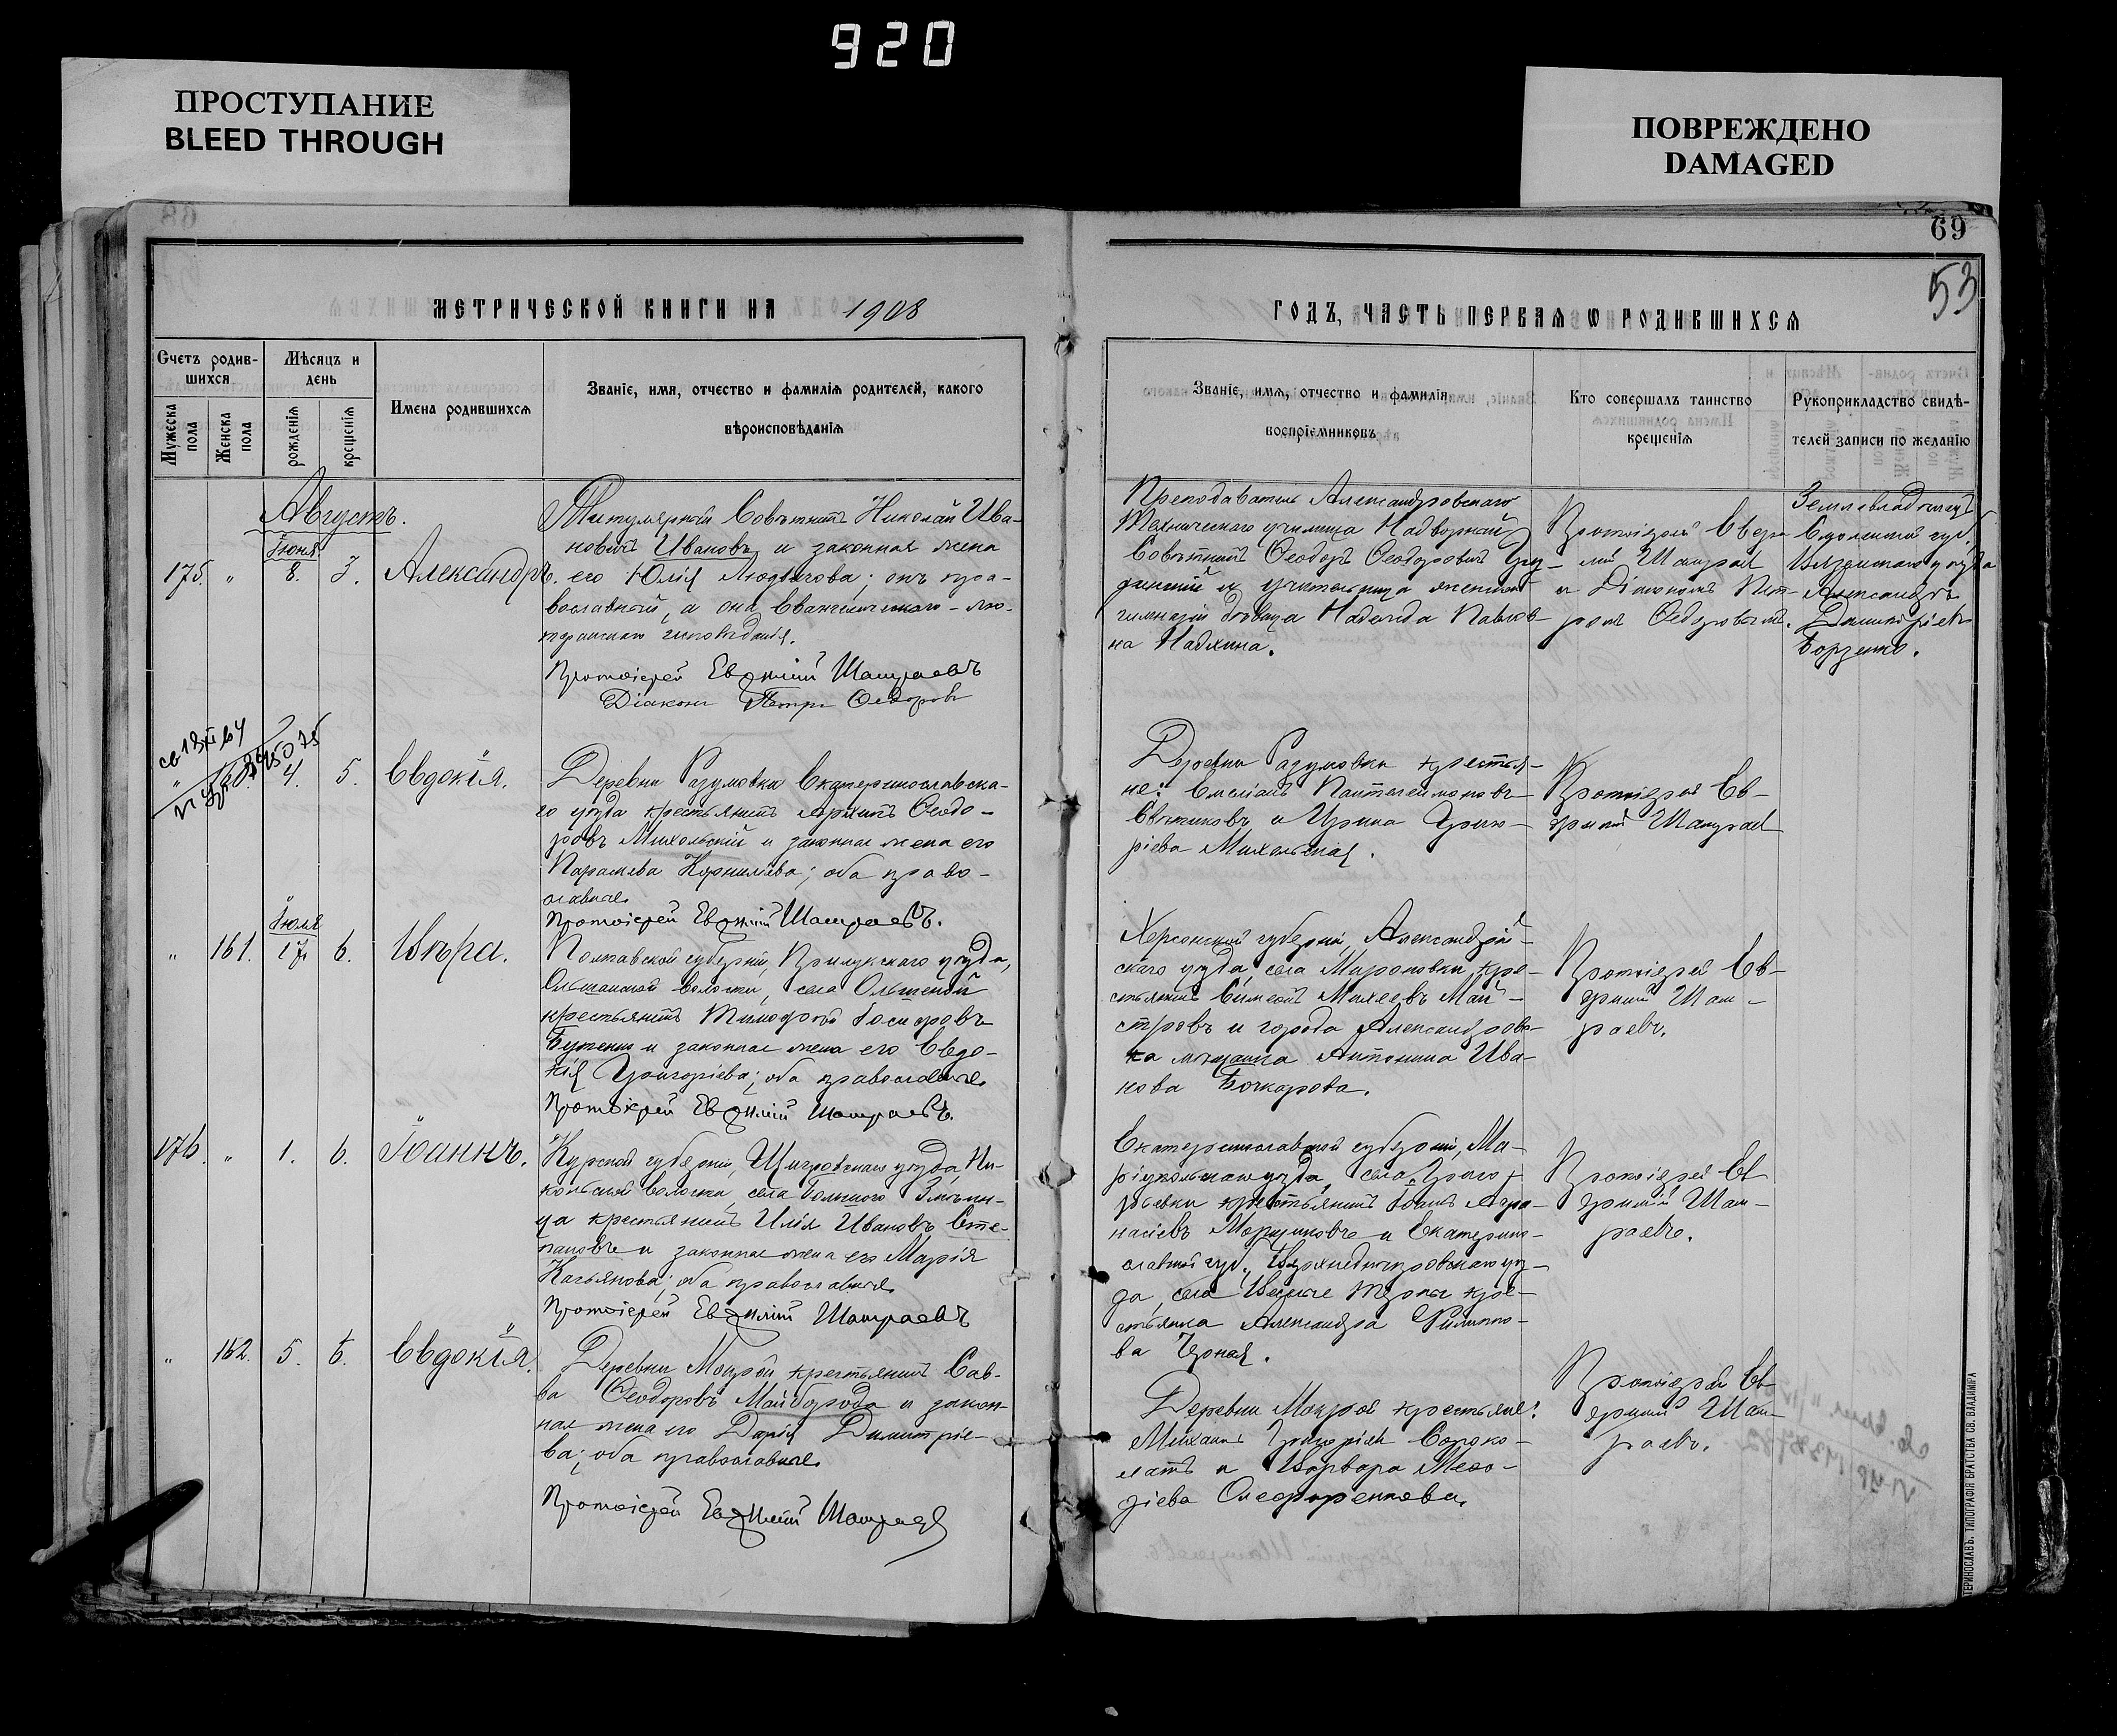 920
ПРОСТУПАНИЕ
BLEED THROUGH
ПОВРЕЖДЕНО
DAMAGED
69
53
МЕТРИЧЕСКОЙ КНИГИ НА 1908
ГОДЪ, ЧАСТЬ ПЕРВАЯ Ѡ РОДИВШИХСЯ
Счетъ родив-
шихся
Мѣсяцъ и
день
Имена родившихся
Званіе, имя, отчество и фамилія родителей, какого
вѣроисповѣданія
Мужеска
пола
Женска
пола
рожденія
крещенія
Званіе, имя, отчество и фамилія
воспріемниковъ
Кто совершалъ таинство
крещенія
Рукоприкладство свидѣ-
телей записи по желанію
Августъ.
Іюня
175. " 8. 3. Александръ.
Титулярный Совѣтникъ Николай Ива-
новичъ Ивановъ и законная жена
его Юлія Людвигова; онъ пра-
вославный, а она Евангелическо-лю-
теранскаго исповѣданія.
Протоіерей Евѳимій Шатраевъ
Діаконъ Петръ Ѳедоровъ
Преподаватель Александровскаго
Техническаго училища Надворный
Совѣтникъ Ѳеодоръ Ѳеодоровичъ
и учительница женской
гимназіи Надежда Павлов-
на
Протоіерей Евѳи-
мій Шатраевъ
и Діакономъ Пет-
ромъ Ѳедоровымъ.
Землевладѣлецъ
Смоленской губ.
Вяземскаго уѣзда
Александръ
Димитріевъ
Борзенко.
" 4. 5. Евдокія.
Деревни Разумовки Екатеринославска-
го уѣзда крестьянинъ Архипъ Ѳеодо-
ровъ Михольскій и законная жена его
Параскева Корнилієва; оба право-
славные.
Протоіерей Евѳимій Шатраевъ.
Деревни Разумовки крестья-
не: Емеліанъ Пантелеимоновъ
и Ирина Григо-
ріева Михольская.
Протоіерей Ев-
ѳимій Шатраевъ
Іюля
" 161. 17. 6. Вѣра.
Полтавской губерніи, Прилукскаго уѣзда,
Ольшанской волости, села Ольшаной
крестьянинъ Тимоѳей Іосифовъ
и законная жена его Евдо-
кія Григоріева; оба православные.
Протоіерей Евѳимій Шатраевъ.
Херсонской губерніи, Александрій-
скаго уѣзда, села Мироновки кре-
стьянинъ Симеонъ Михеевъ Май-
стровъ и города Александровс-
ка мѣщанка Антонина Ива-
нова Бочкарова.
Протоіерей Ев-
ѳимій Шат-
раевъ.
176. " 1. 6. Іоаннъ.
Курской губерніи, Щигровскаго уѣзда, Ни-
кольской волости, села Большого Змѣин-
ца крестьянинъ Илія Ивановъ Сте-
пановъ и законная жена его Марія
Касьянова; оба православные.
Протоіерей Евѳимій Шатраевъ
Екатеринославской губерніи, Ма-
ріупольскаго уѣзда, села
крестьянинъ Іоаннъ Аѳа-
насіевъ и Екатерино-
славской губ., Верхнеднѣпровскаго уѣз-
да, села крес-
тьянка Александра Филиппо-
ва Чорная.
Протоіерей Ев-
ѳимій Шат-
раевъ.
" 162. 5. 6. Евдокія.
Деревни Мокрой крестьянинъ Сав-
ва Ѳеодоровъ Майборода и закон-
ная жена его Дарія Димитріе-
ва; оба православные.
Протоіерей Евѳимій Шатраевъ
Деревни Мокрой крестьяне:
Михаилъ Григоріевъ Сороко-
латъ и Варвара Меѳо-
діева Олеференкова.
Протоіерей Ев-
ѳимій Шат-
раевъ.
ТИПОГРАФІЯ БРАТСТВА СВ. ВЛАДИМІРА